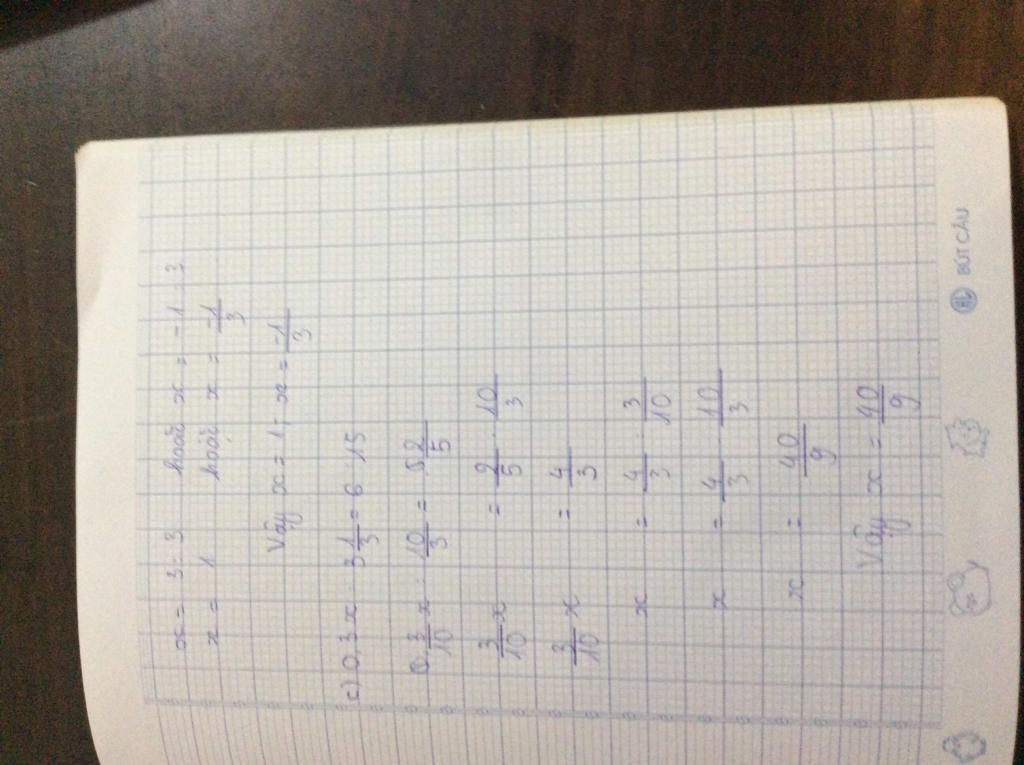 x = 3 : 3 hoặc x = -1 : 3
x = 1 hoặc x = -1/3
Vậy x = 1 ; x = -1/3
c) 0,3x : 3 1/3 = 6 : 15
3/10 x : 10/3 = 2/5
3/10 x = 2/5 . 10/3
3/10 x = 4/3
x = 4/3 : 3/10
x = 4/3 . 10/3
x = 40/9
Vậy x = 40/9
BÚT CÂU